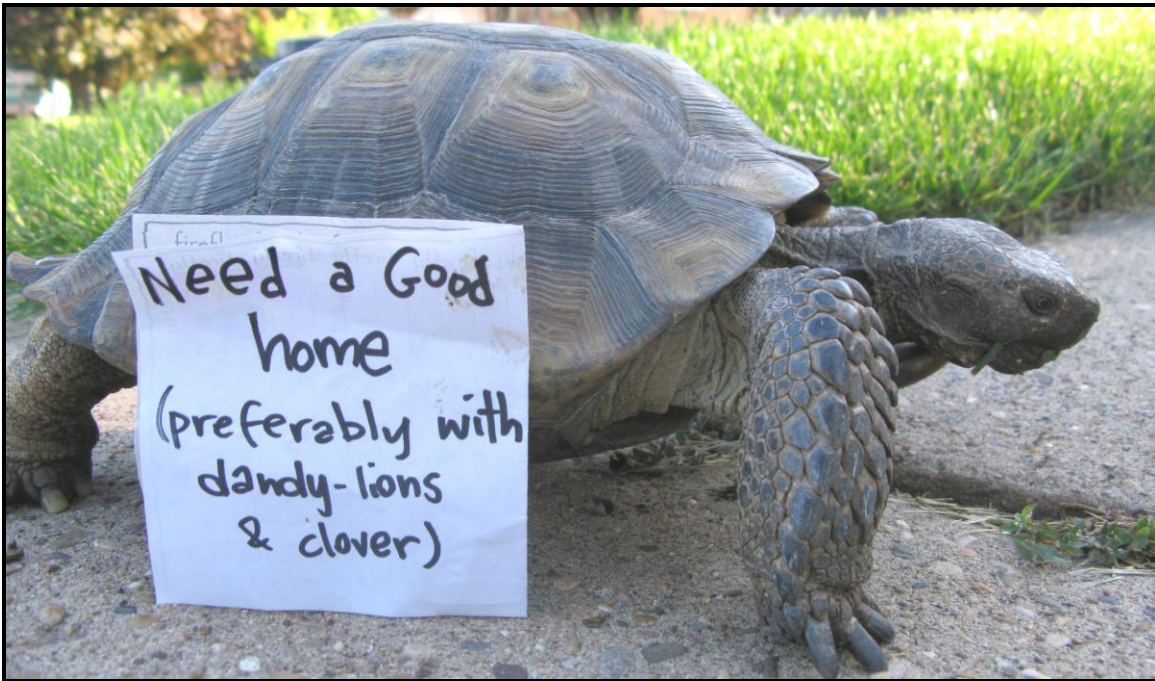 Need a Good
home
(preferably with
dandy-lions
& clover)